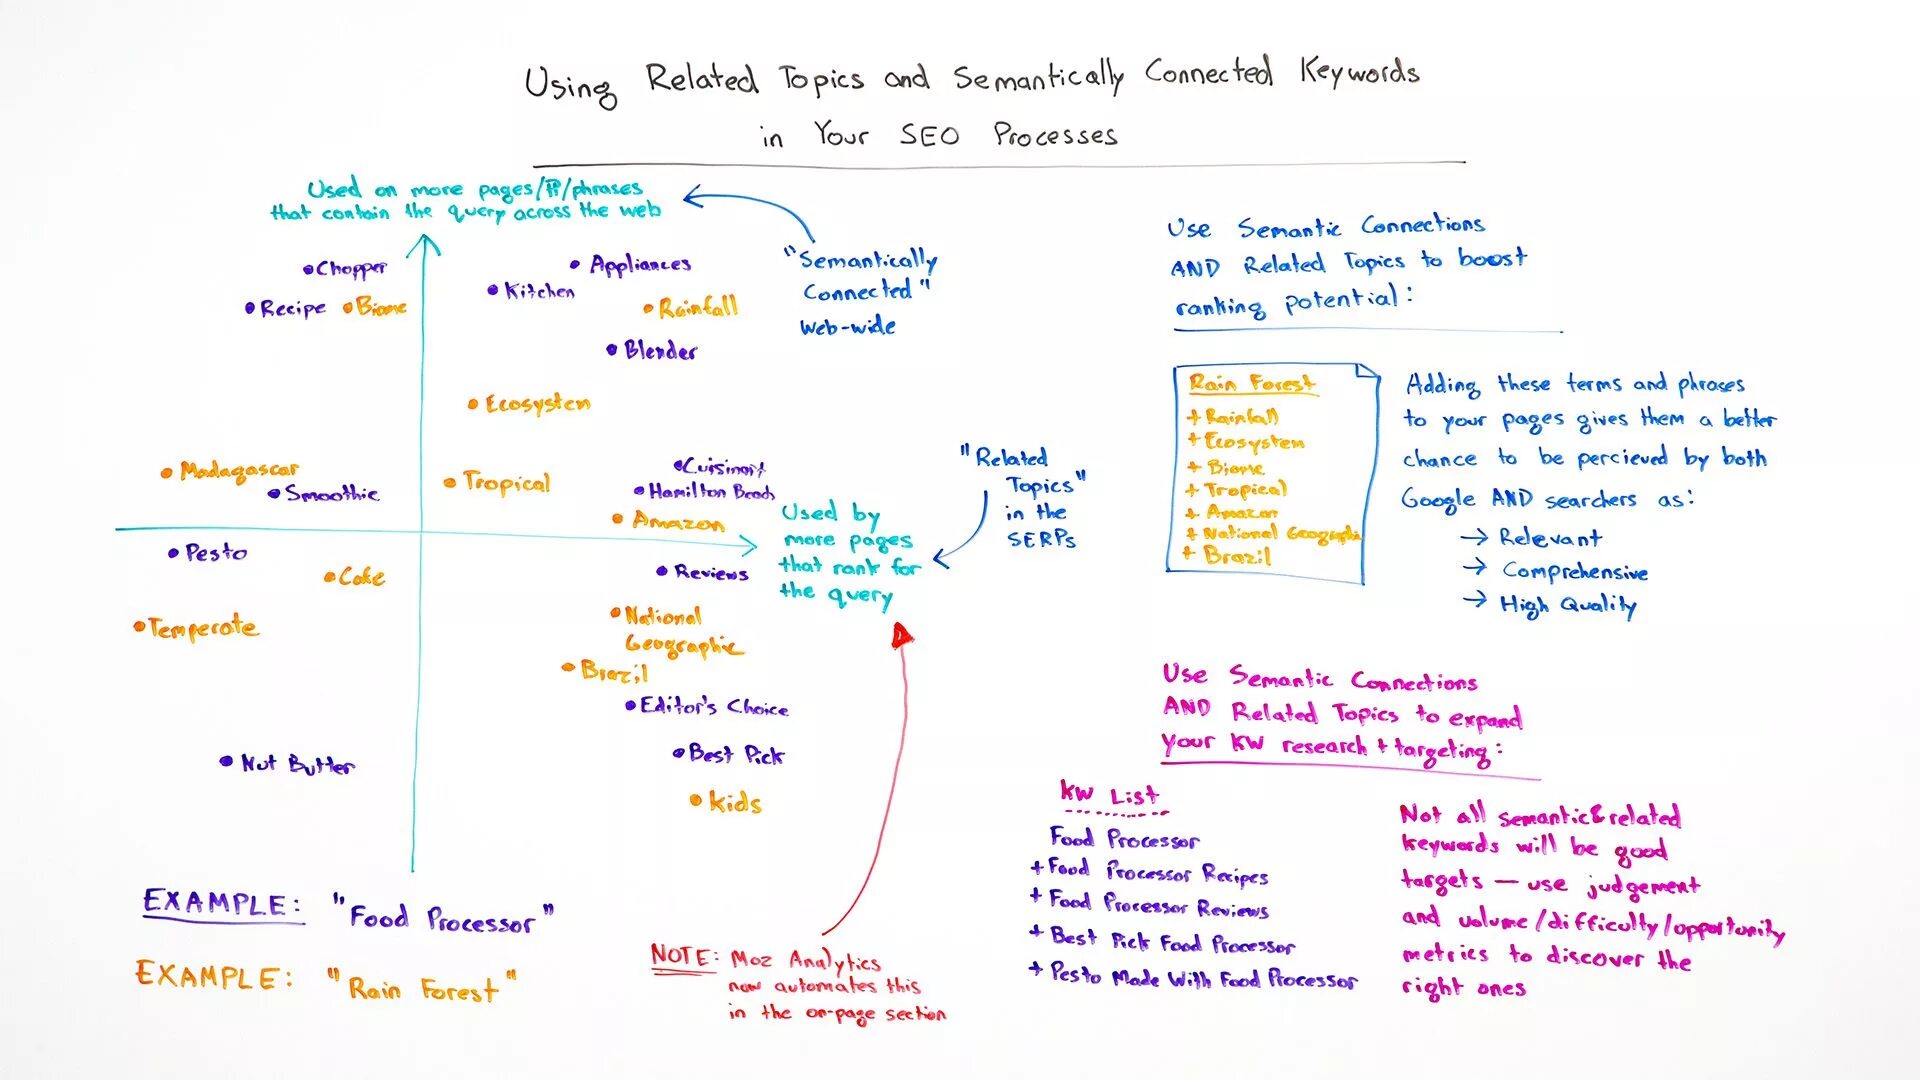 Using Related Topics and Semantically Connected Keywords
in Your SEO Processes
Used on more pages/PP/phrases
that contain the query across the web
"Semantically
Connected"
Web-wide
• Chopper
• Recipe
• Biome
• Appliances
• Kitchen
• Rainfall
• Blender
• Ecosystem
• Madagascar
• Smoothie
• Tropical
• Cuisinart
• Hamilton Beach
• Amazon
Used by
more pages
that rank for
the query
"Related
Topics"
in the
SERPs
• Pesto
• Cake
• Temperate
• Reviews
• National
Geographic
• Brazil
• Editor's Choice
• Nut Butter
• Best Pick
• Kids
EXAMPLE: "Food Processor"
EXAMPLE: "Rain Forest"
NOTE: Moz Analytics
now automates this
in the on-page section
Use Semantic Connections
AND Related Topics to boost
ranking potential:
Rain Forest
+ Rainfall
+ Ecosystem
+ Biome
+ Tropical
+ Amazon
+ National Geographic
+ Brazil
Adding these terms and phrases
to your pages gives them a better
chance to be percieved by both
Google AND searchers as:
→ Relevant
→ Comprehensive
→ High Quality
Use Semantic Connections
AND Related Topics to expand
your KW research + targeting:
KW List
Food Processor
+ Food Processor Recipes
+ Food Processor Reviews
+ Best Pick Food Processor
+ Pesto Made With Food Processor
Not all semantic & related
keywords will be good
targets — use judgement
and volume/difficulty/opportunity
metrics to discover the
right ones